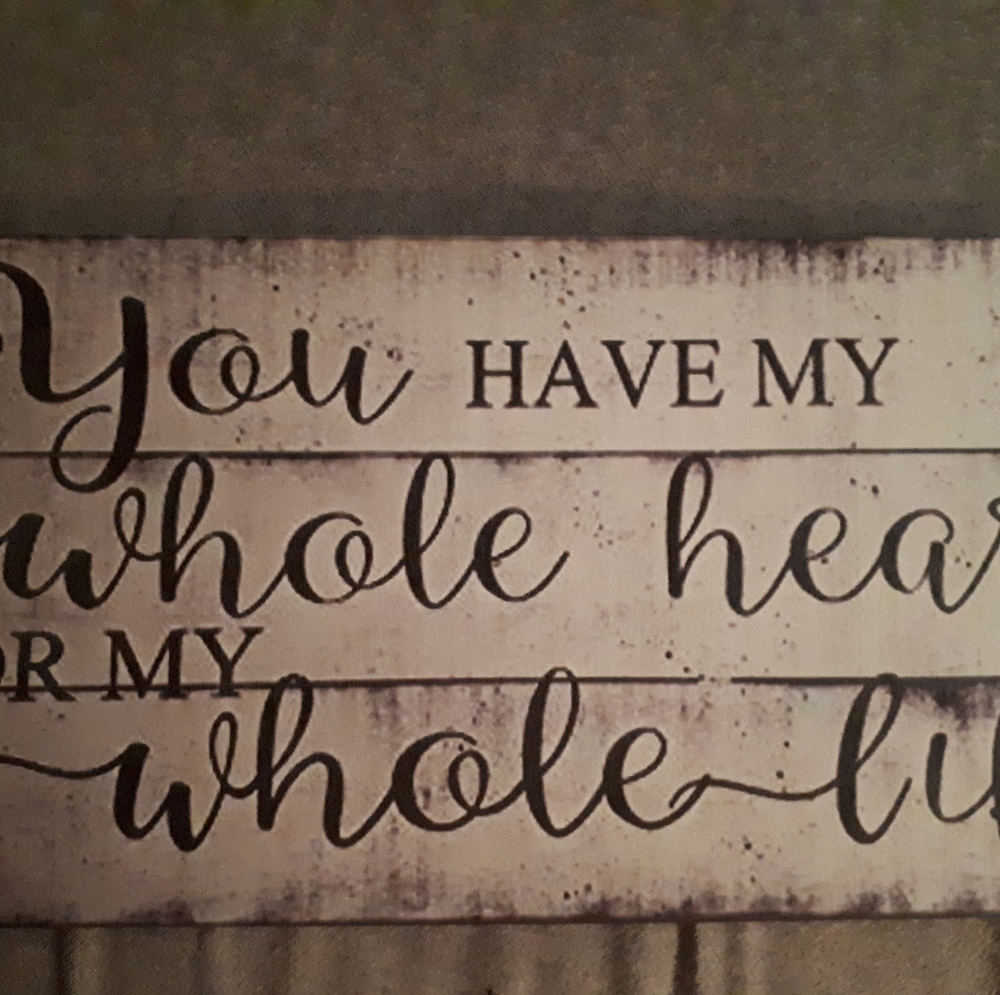 You HAVE MY
whole hear
OR MY
whole li